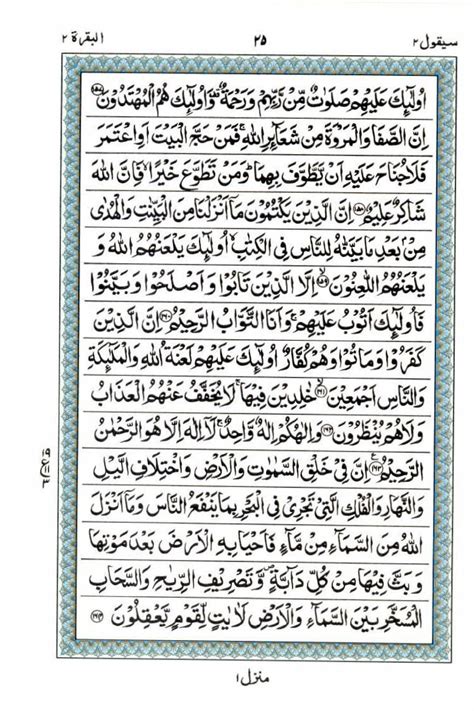 سيقول ٢ ٢٥ البقرة ٢
اُولٰٓئِكَ عَلَيْهِمْ صَلَوٰتٌ مِّنْ رَّبِّهِمْ وَرَحْمَةٌ ۫ وَاُولٰٓئِكَ هُمُ الْمُهْتَدُوْنَ ﴿١٥٧﴾
اِنَّ الصَّفَا وَالْمَرْوَةَ مِنْ شَعَآئِرِ اللّٰهِ ۚ فَمَنْ حَجَّ الْبَيْتَ اَوِاعْتَمَرَ
فَلَاجُنَاحَ عَلَيْهِ اَنْ يَّطَّوَّفَ بِهِمَا ؕ وَمَنْ تَطَوَّعَ خَيْرًا ۙ فَاِنَّ اللّٰهَ
شَاكِرٌ عَلِيْمٌ ﴿١٥٨﴾ اِنَّ الَّذِيْنَ يَكْتُمُوْنَ مَآ اَنْزَلْنَا مِنَ الْبَيِّنٰتِ وَالْهُدٰى
مِنْۢ بَعْدِ مَا بَيَّنّٰهُ لِلنَّاسِ فِى الْكِتٰبِ ۙ اُولٰٓئِكَ يَلْعَنُهُمُ اللّٰهُ وَ
يَلْعَنُهُمُ اللّٰعِنُوْنَ ﴿١٥٩﴾ اِلَّا الَّذِيْنَ تَابُوْا وَاَصْلَحُوْا وَبَيَّنُوْا
فَاُولٰٓئِكَ اَتُوْبُ عَلَيْهِمْ ۚ وَاَنَا التَّوَّابُ الرَّحِيْمُ ﴿١٦٠﴾ اِنَّ الَّذِيْنَ
كَفَرُوْا وَمَاتُوْا وَهُمْ كُفَّارٌ اُولٰٓئِكَ عَلَيْهِمْ لَعْنَةُ اللّٰهِ وَالْمَلٰٓئِكَةِ
وَالنَّاسِ اَجْمَعِيْنَ ﴿١٦١﴾ خٰلِدِيْنَ فِيْهَا ۚ لَا يُخَفَّفُ عَنْهُمُ الْعَذَابُ
وَلَاهُمْ يُنْظَرُوْنَ ﴿١٦٢﴾ وَاِلٰهُكُمْ اِلٰهٌ وَّاحِدٌ ۚ لَآ اِلٰهَ اِلَّا هُوَ الرَّحْمٰنُ
الرَّحِيْمُ ﴿١٦٣﴾ اِنَّ فِىْ خَلْقِ السَّمٰوٰتِ وَالْاَرْضِ وَاخْتِلَافِ الَّيْلِ
وَالنَّهَارِ وَالْفُلْكِ الَّتِىْ تَجْرِىْ فِى الْبَحْرِ بِمَا يَنْفَعُ النَّاسَ وَمَآ اَنْزَلَ
اللّٰهُ مِنَ السَّمَآءِ مِنْ مَّآءٍ فَاَحْيَا بِهِ الْاَرْضَ بَعْدَ مَوْتِهَا
وَبَثَّ فِيْهَا مِنْ كُلِّ دَآبَّةٍ ۪ وَّتَصْرِيْفِ الرِّيٰحِ وَالسَّحَابِ
الْمُسَخَّرِ بَيْنَ السَّمَآءِ وَالْاَرْضِ لَاٰيٰتٍ لِّقَوْمٍ يَّعْقِلُوْنَ ﴿١٦٤﴾
منزل ١